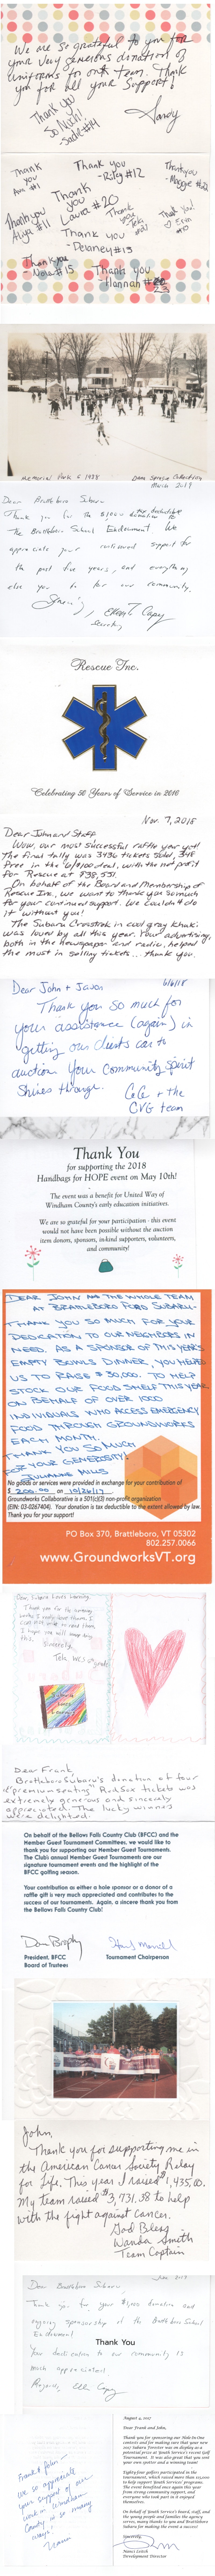 We are so grateful to you for
your very generous donation of
uniforms to our team. Thank
you for all your support!
Thank you
so much!
Sandy
Thank
you
Thank you
-Riley #12
Thank you
-Maggie #22
Thank you
Alya #11
Thank
you
Laura #20
Thank
you
Thank you!
Erin
#10
Thank you
-Delaney #13
Thank you
-Nova #15
Thank you
-Hannah
23
Memorial Park
Dana Sprague Collection
March 2019
Dear Brattleboro Subaru
Thank you for the $1,000 tax deductible donation to
the Brattleboro School Endowment. We
appreciate your continued support for
the past five years, and everything
else you do for our community.
Sincerely,
Ellen T. Capy
Secretary
Rescue Inc.
Celebrating 50 Years of Service in 2016
Nov. 7, 2018
Dear John and Staff
Wow, our most successful raffle year yet!
The final tally was 3430 tickets sold, 348
were the 10/$100 deal, with the net profit
for Rescue at $38,551.
On behalf of the Board and Membership of
Rescue Inc., we want to thank you so much
for your continued support. We couldn't do
it without you!
The Subaru Crosstrek in cool gray khaki
was loved by all this year. Your advertising,
both in the newspaper and radio, helped
the most in selling tickets... thank you.
Dear John + Jason
6/6/18
Thank you so much for
your assistance (again) in
getting our clients cars to
auction. Your Community Spirit
shines through.
CeCe + the
CVG team
Thank You
for supporting the 2018
Handbags for HOPE event on May 10th!
The event was a benefit for United Way of
Windham County's early education initiatives.
We are so grateful for your participation - this event
would not have been possible without the auction
item donors, sponsors, in-kind supporters, volunteers,
and community!
DEAR JOHN AND THE WHOLE TEAM
AT BRATTLEBORO FORD SUBARU-
THANK YOU SO MUCH FOR YOUR
DEDICATION TO OUR NEIGHBORS IN
NEED. AS A SPONSOR OF THIS YEAR'S
EMPTY BOWLS DINNER, YOU HELPED
US TO RAISE $30,000. TO HELP
STOCK OUR FOOD SHELF THIS YEAR
ON BEHALF OF OVER 1000
INDIVIDUALS WHO ACCESS EMERGENCY
FOOD THROUGH GROUNDWORKS
EACH MONTH.
THANK YOU SO MUCH
FOR YOUR GENEROSITY!
JULIANNE MILLS
No goods or services were provided in exchange for your contribution of
$ 200.00 on 10/26/17
Groundworks Collaborative is a 501(c)(3) non-profit organization
(EIN: 03-0267404). Your donation is tax deductible to the extent allowed by law.
Thank you for your support!
PO Box 370, Brattleboro, VT 05302
802.257.0066
www.GroundworksVT.org
Dear, Subaru Loves Learning
Thank you for the amazing
books I really love them. I
can not wait to read them
I hope you will keep doing
this.
Sincerely,
Dear Frank,
Brattleboro Subaru's donation of four
"premium seating" Red Sox tickets was
extremely generous and sincerely
appreciated. The lucky winners
were delighted.
On behalf of the Bellows Falls Country Club (BFCC) and the
Member Guest Tournament Committees, we would like to
thank you for supporting our Member Guest Tournaments.
The Club's annual Member Guest Tournaments are our
signature tournament events and the highlight of the
BFCC golfing season.
Your contribution as either a hole sponsor or a donor of a
raffle gift is very much appreciated and contributes to the
success of our tournaments. Again, a sincere thank you from
the Bellows Falls Country Club!
President, BFCC
Board of Trustees
Tournament Chairperson
John,
Thank you for supporting me in
the American Cancer Society Relay
for Life. This year I raised $1,435.00.
My team raised $3,731.38 to help
with the fight against cancer.
God Bless
Wanda Smith
Team Captain
Dear Brattleboro Subaru,
Thank you for your $1,000 donation and
ongoing sponsorship of the Brattleboro School
Endowment.
Thank You
Your dedication to our community is
much appreciated!
Ellen Capy
Frank & John-
We so appreciate
your support of our
work in Windham
County in so many
ways!
Nanci
August 2, 2017
Dear Frank and John,
Thank you for sponsoring our Hole-In-One
contest and for making sure that your new
2017 Subaru Forester was on display as a
potential prize at Youth Service's recent Golf
Tournament. It was also great that you sent
both a great golfer and a winning team!
Eighty-four golfers participated in the
tournament, which raised more than 22,000
to help support Youth Services' programs.
The event benefited once again this year
from strong community support, and
everyone who took part in it enjoyed
themselves.
On behalf of Youth Service's board, staff, and
the young people and families the agency
serves, many thanks to you and Brattleboro
Subaru for making the event a success!
Sincerely,
Nanci Leitch
Development Director